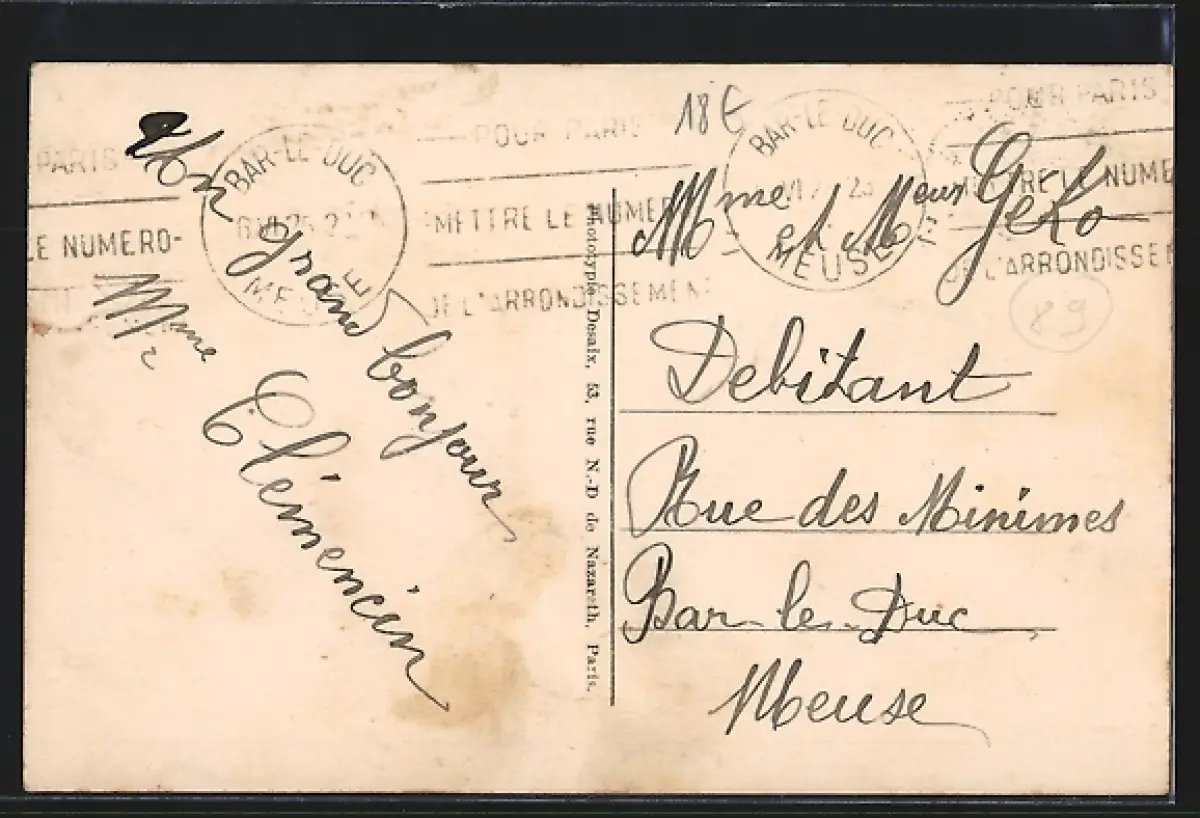 Un
grand
bonjour
Mme
Clémencin
18 €
Mme et Meur Geko
Debitant
Rue des Minimes
Bar-le-Duc
Meuse
89
Phototypie Desaix, 53, rue N.-D de Nazareth, Paris.
PARIS
LE NUMERO-
BAR-LE DUC
MEUSE
POUR PARIS
METTRE LE NUMERO
DE L'ARRONDISSEMENT
BAR-LE DUC
MEUSE
POUR PARIS
METTRE LE NUME
DE L'ARRONDISSE